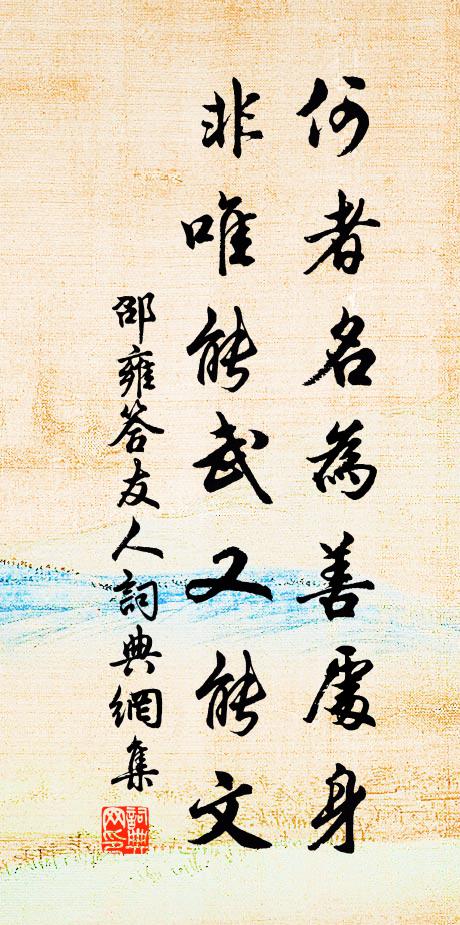 何者名為善處身
非唯能武又能文
邵雍答友人詞典網集